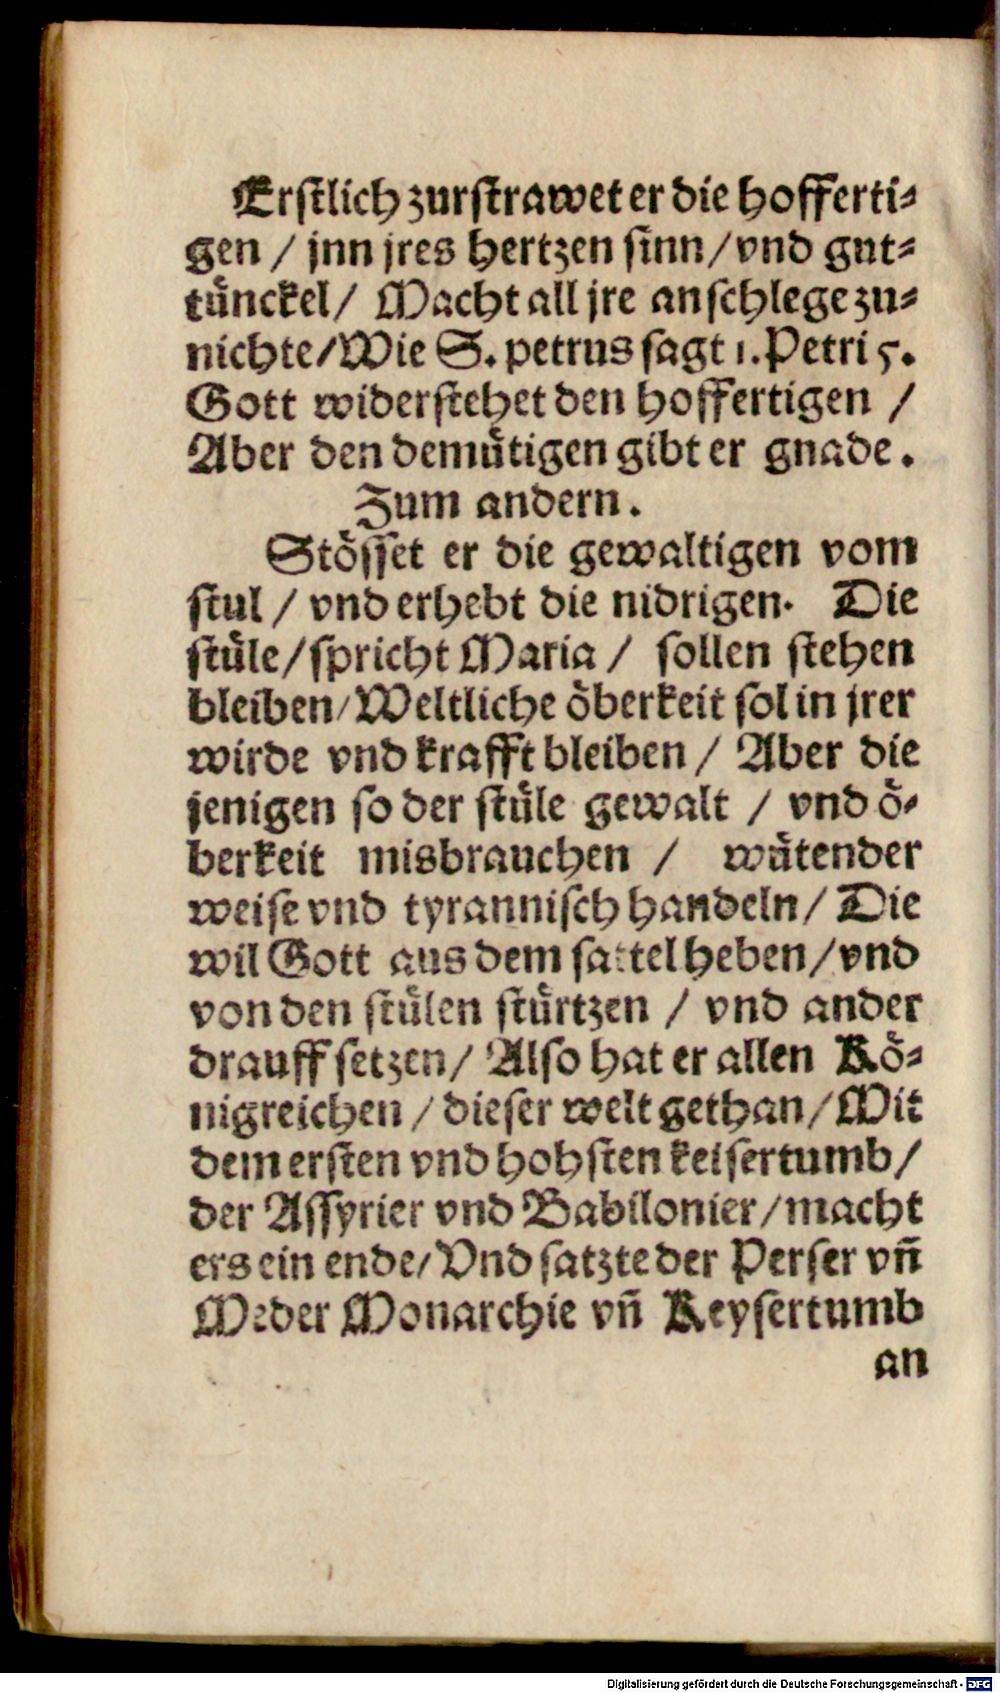 Erstlich zurstrawet er die hofferti⸗
gen / jnn jres hertzen sinn / vnd gut⸗
tünckel / Macht all jre anschlege zu⸗
nichte / Wie S. petrus sagt 1. Petri 5.
Gott widerstehet den hoffertigen /
Aber den demütigen gibt er gnade.
Zum andern.
Stösset er die gewaltigen vom
stul / vnd erhebt die nidrigen. Die
stüle / spricht Maria / sollen stehen
bleiben / Weltliche öberkeit sol in jrer
wirde vnd krafft bleiben / Aber die
jenigen so der stüle gewalt / vnd ö⸗
berkeit misbrauchen / wütender
weise vnd tyrannisch handeln / Die
wil Gott aus dem sattel heben / vnd
von den stülen stürtzen / vnd ander
drauff setzen / Also hat er allen Kö⸗
nigreichen / dieser welt gethan / Mit
dem ersten vnd hohsten keisertumb /
der Assyrier vnd Babilonier / macht
ers ein ende / Vnd satzte der Perser vñ
Meder Monarchie vñ Keysertumb
an
Digitalisierung gefördert durch die Deutsche Forschungsgemeinschaft - DFG